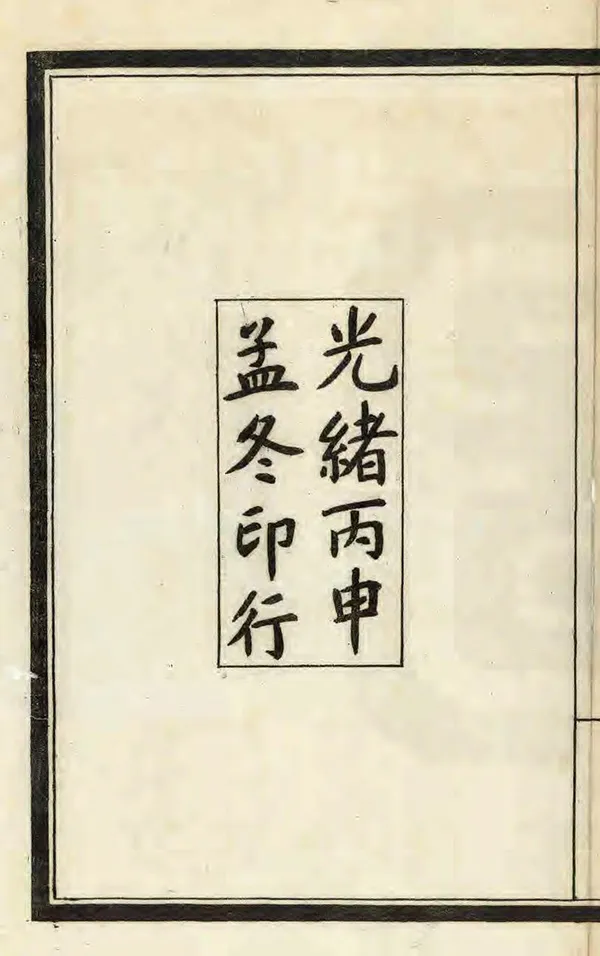 光緒丙申
孟冬印行